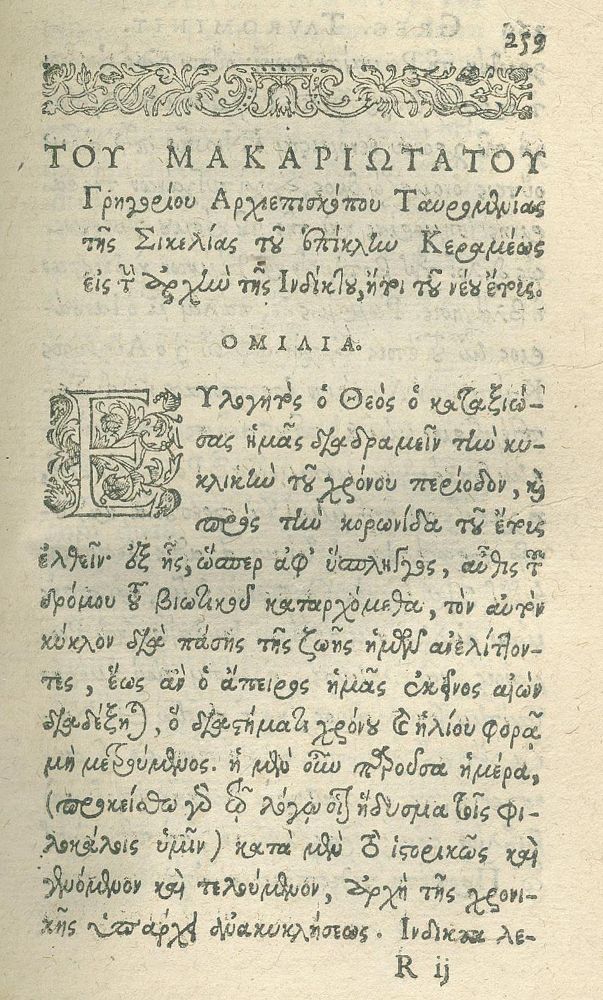 259
ΤΟΥ ΜΑΚΑΡΙΩΤΑΤΟΥ
Γρηγορίου Ἀρχιεπισκόπου Ταυρομενίας
τῆς Σικελίας τοῦ ἐπίκλην Κεραμέως
εἰς τὴν ἀρχὴν τῆς Ἰνδίκτου, ἤτοι τοῦ νέου ἔτους.
ΟΜΙΛΙΑ.
ΕΥλογητὸς ὁ Θεὸς ὁ καταξιώ-
σας ἡμᾶς διαδραμεῖν τὴν κυ-
κλικὴν τοῦ χρόνου περίοδον, καὶ
πρὸς τὴν κορωνίδα τοῦ ἔτους
ἐλθεῖν· ἐξ ἧς, ὥσπερ ἀφ' ὕσπληγγος, αὖθις τοῦ
δρόμου τοῦ βιωτικοῦ καταρχόμεθα, τὸν αὐτὸν
κύκλον διὰ πάσης τῆς ζωῆς ἡμῶν ἀνελίττον-
τες, ἕως ἂν ὁ ἄπειρος ἡμᾶς ἐκεῖνος αἰὼν
διαδέξηται, ὁ διαστήματι χρόνου καὶ ἡλίου φορᾷ
μὴ μετρούμενος. ἡ μὲν οὖν παροῦσα ἡμέρα,
(προκείσθω γὰρ τῷ λόγῳ ἥδυσμα τοῖς φι-
λοκάλοις ὑμῖν) κατὰ μὲν τὸ ἱστορικῶς καὶ
γενόμενον καὶ τελούμενον, ἀρχὴ τῆς χρονι-
κῆς ὑπάρχει ἀνακυκλήσεως. Ἴνδικτα λε-
R ij